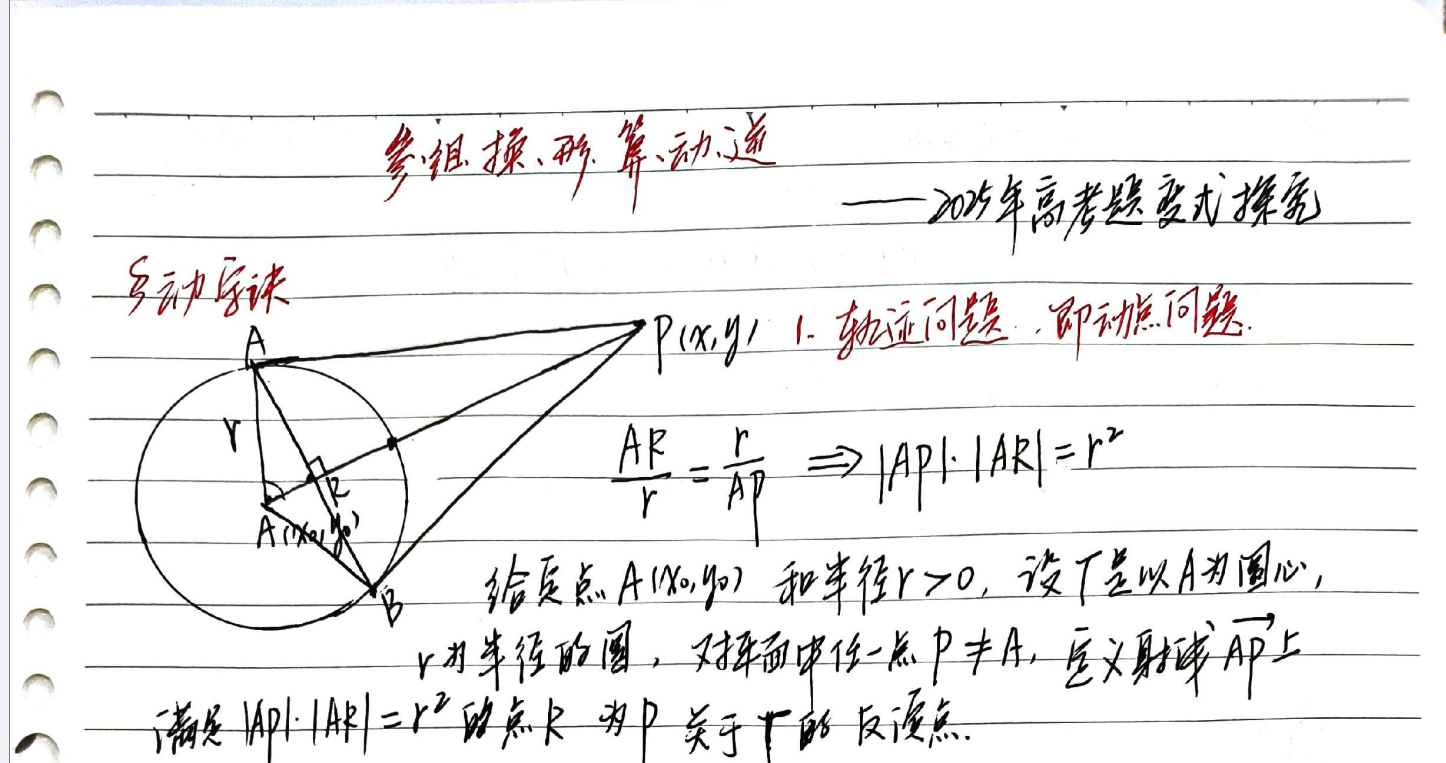 参、组、换、形、算、动、逆
——2025年高考题变式探究
动字诀
A
P(x,y) 1. 轨迹问题、即动点问题.
r
R
AR/r = r/AP ⇒ |AP|·|AR|=r²
A(x₀,y₀)
B
给定点A(x₀,y₀) 和半径r>0, 设Γ是以A为圆心,
r为半径的圆, 对平面中任一点P≠A, 定义射线AP上
满足|AP|·|AR|=r²的点R 为P关于Γ的反演点.